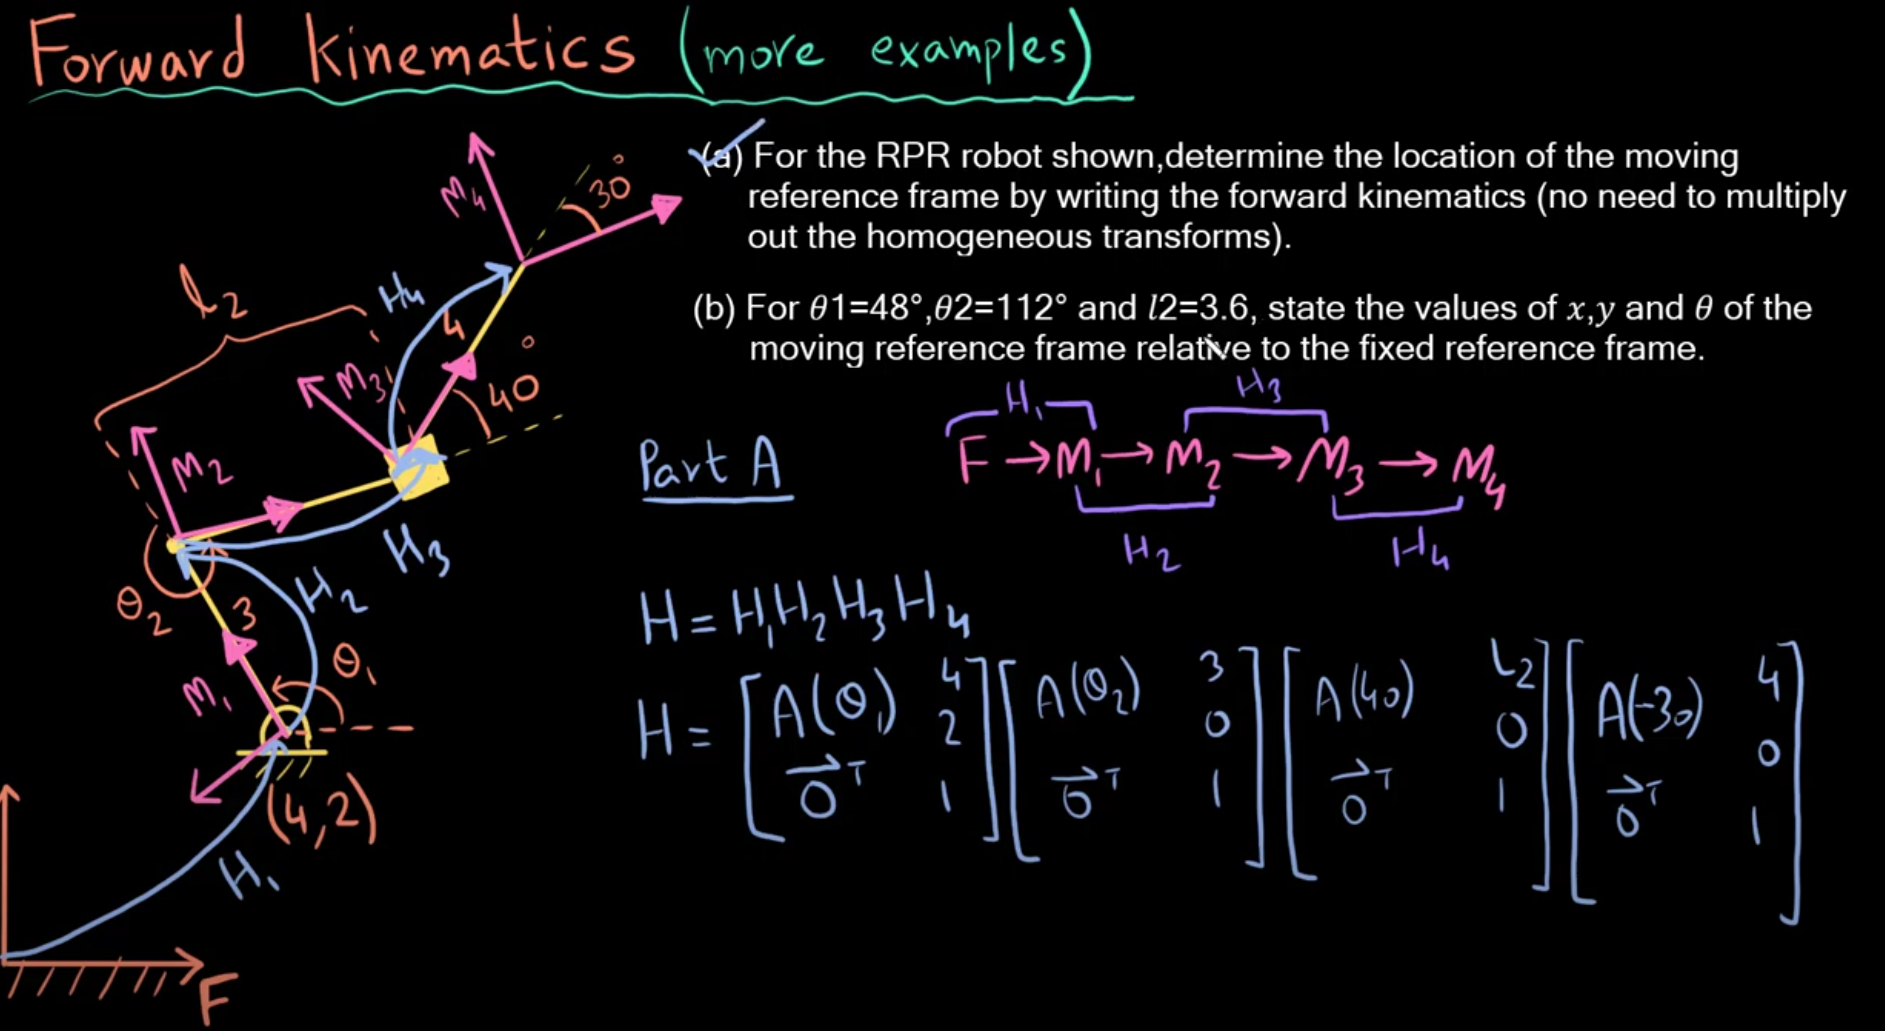 Forward Kinematics (more examples)
(a) For the RPR robot shown,determine the location of the moving
reference frame by writing the forward kinematics (no need to multiply
out the homogeneous transforms).
(b) For θ1=48°,θ2=112° and l2=3.6, state the values of x,y and θ of the
moving reference frame relative to the fixed reference frame.
M4
30°
l2
H4
4
M3
40°
M2
H3
θ2
3
H2
θ1
M1
(4,2)
H1
F
H1 H3
Part A
F → M1 → M2 → M3 → M4
H2 H4
H = H1 H2 H3 H4
H = [A(θ1) 4 2 0⃗ᵀ 1] [A(θ2) 3 0 0⃗ᵀ 1] [A(40) L2 0 0⃗ᵀ 1] [A(-30) 4 0 0⃗ᵀ 1]